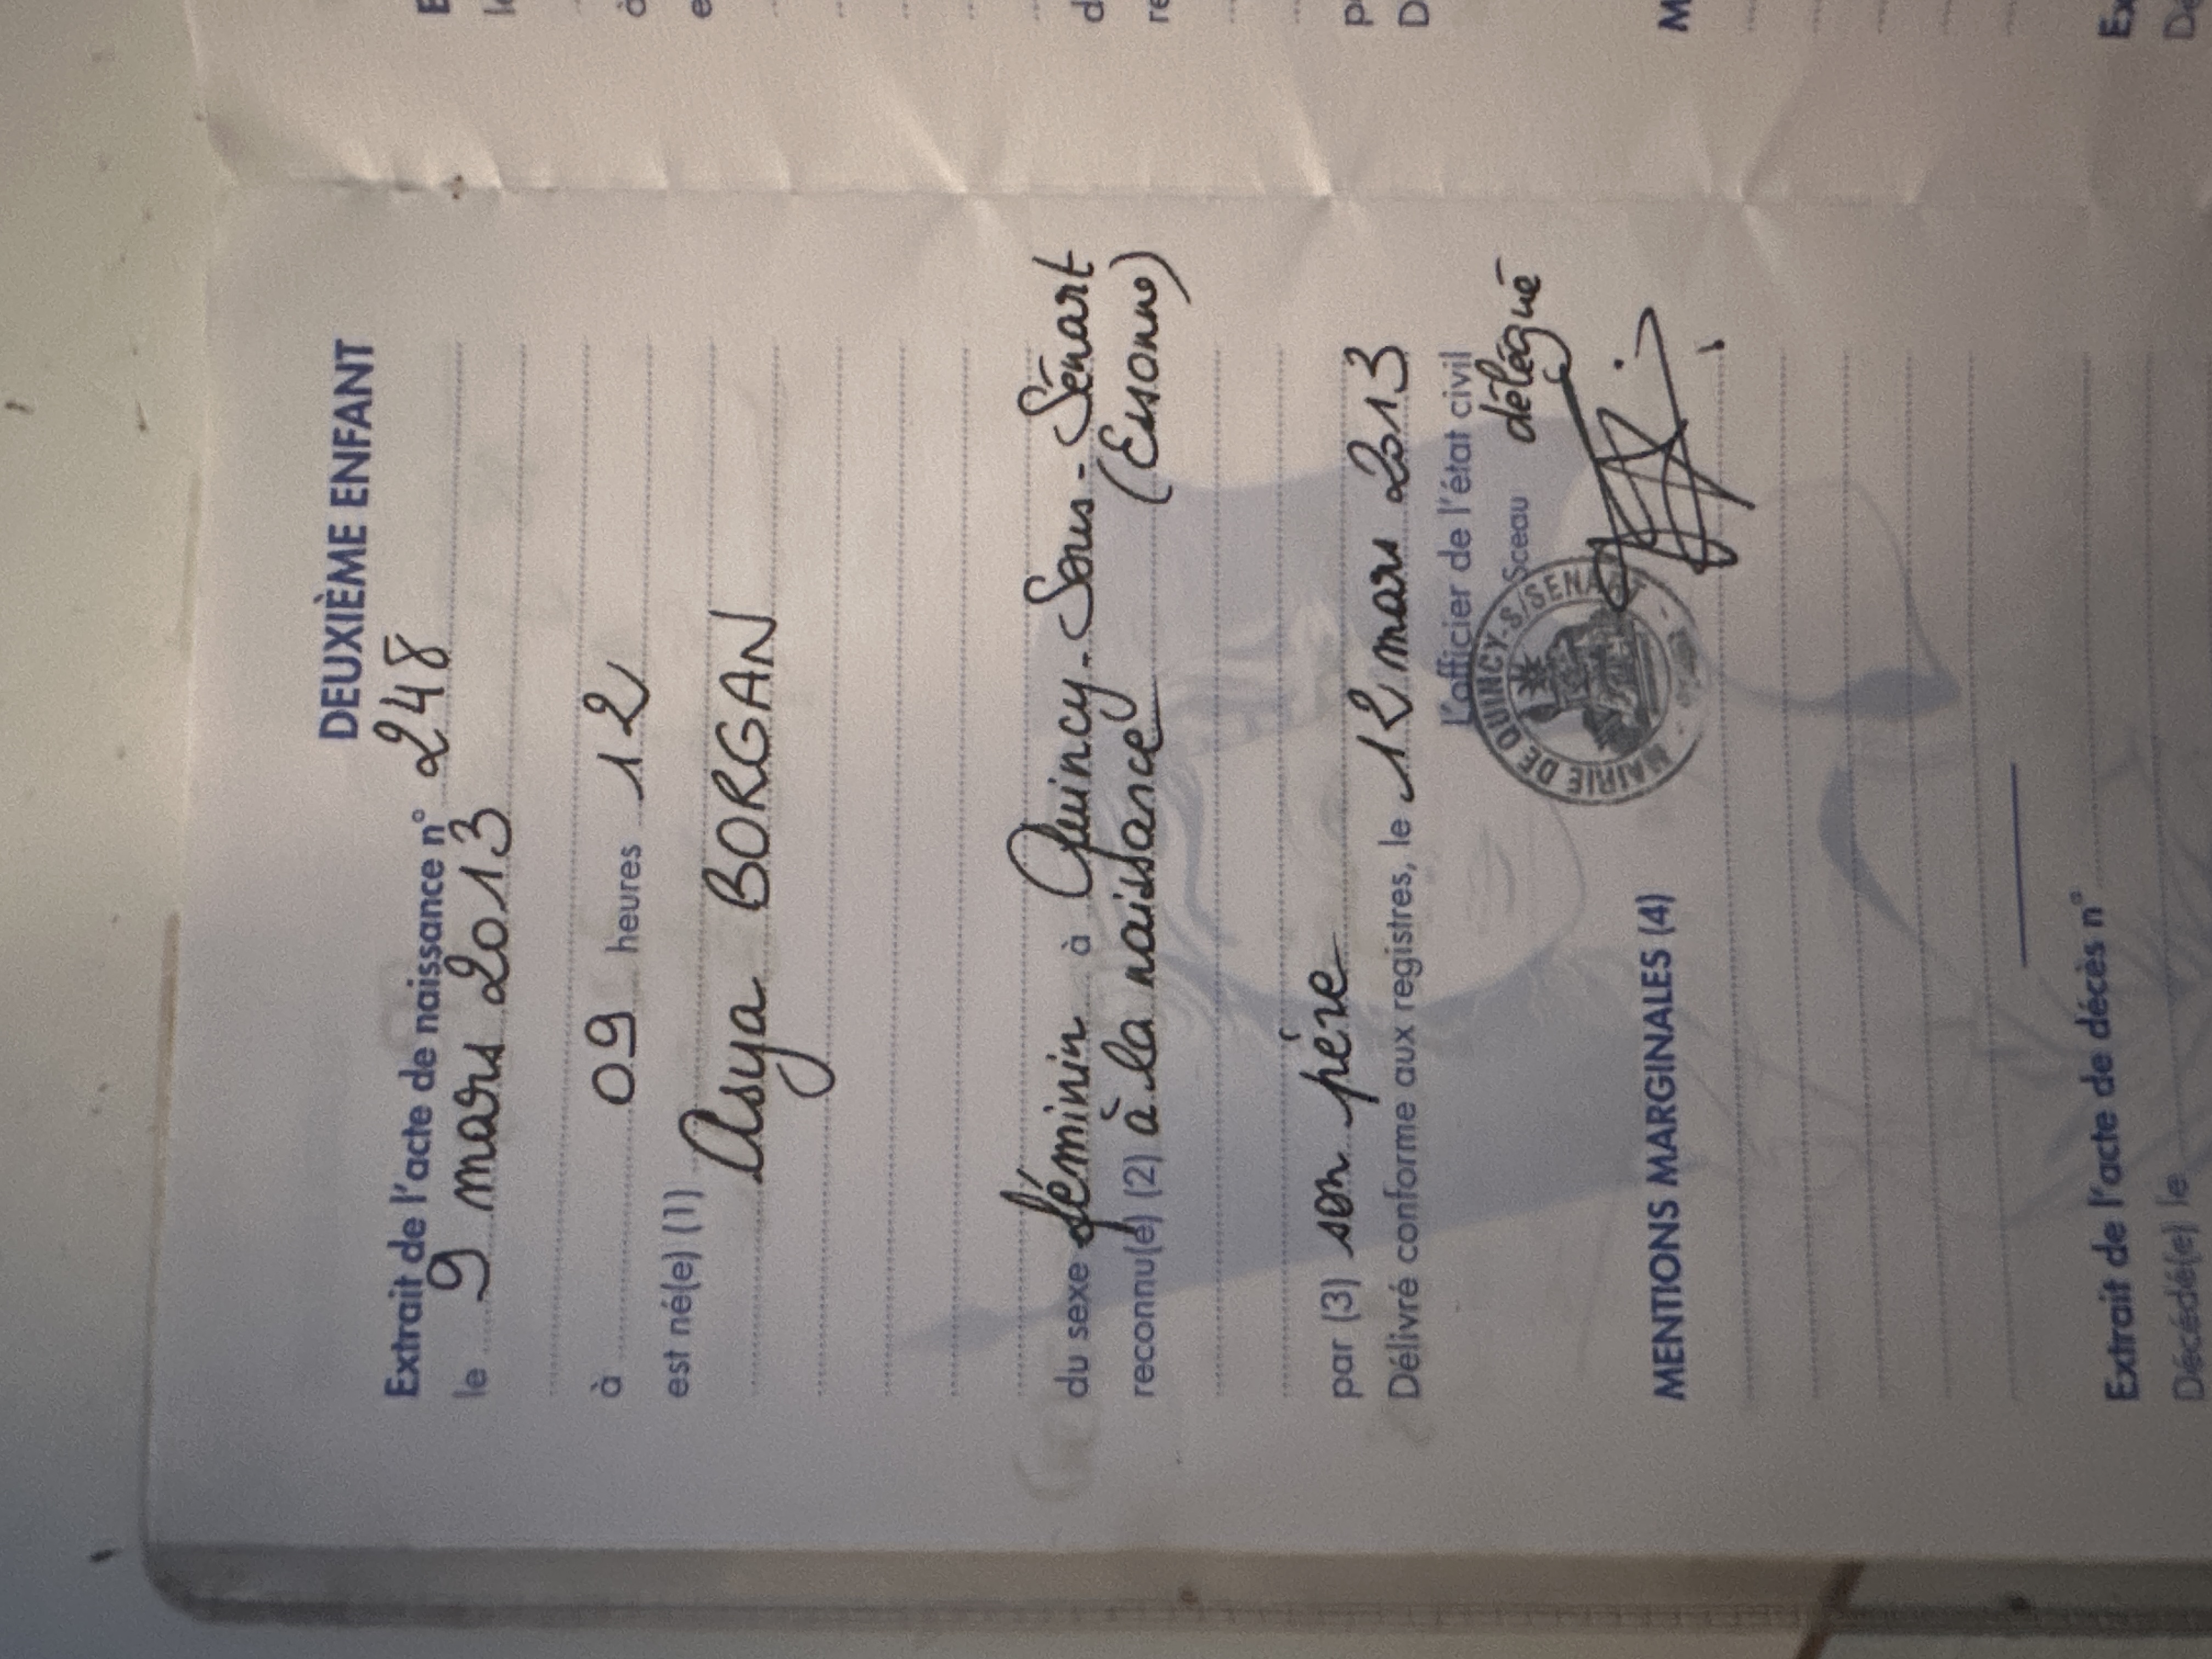 DEUXIÈME ENFANT
Extrait de l'acte de naissance n° 248
le 9 mars 2013
à 09 heures 12
est né(e) (1)
Asya BORGAN
du sexe féminin à Quincy-Sous-Sénart
reconnu(e) (2) à la naissance (Essonne)
par (3) son père
Délivré conforme aux registres, le 12 mars 2013
L'officier de l'état civil
Sceau délégué
MAIRIE DE QUINCY-S/SENART
MENTIONS MARGINALES (4)
Extrait de l'acte de décès n°
Décédé(e) le